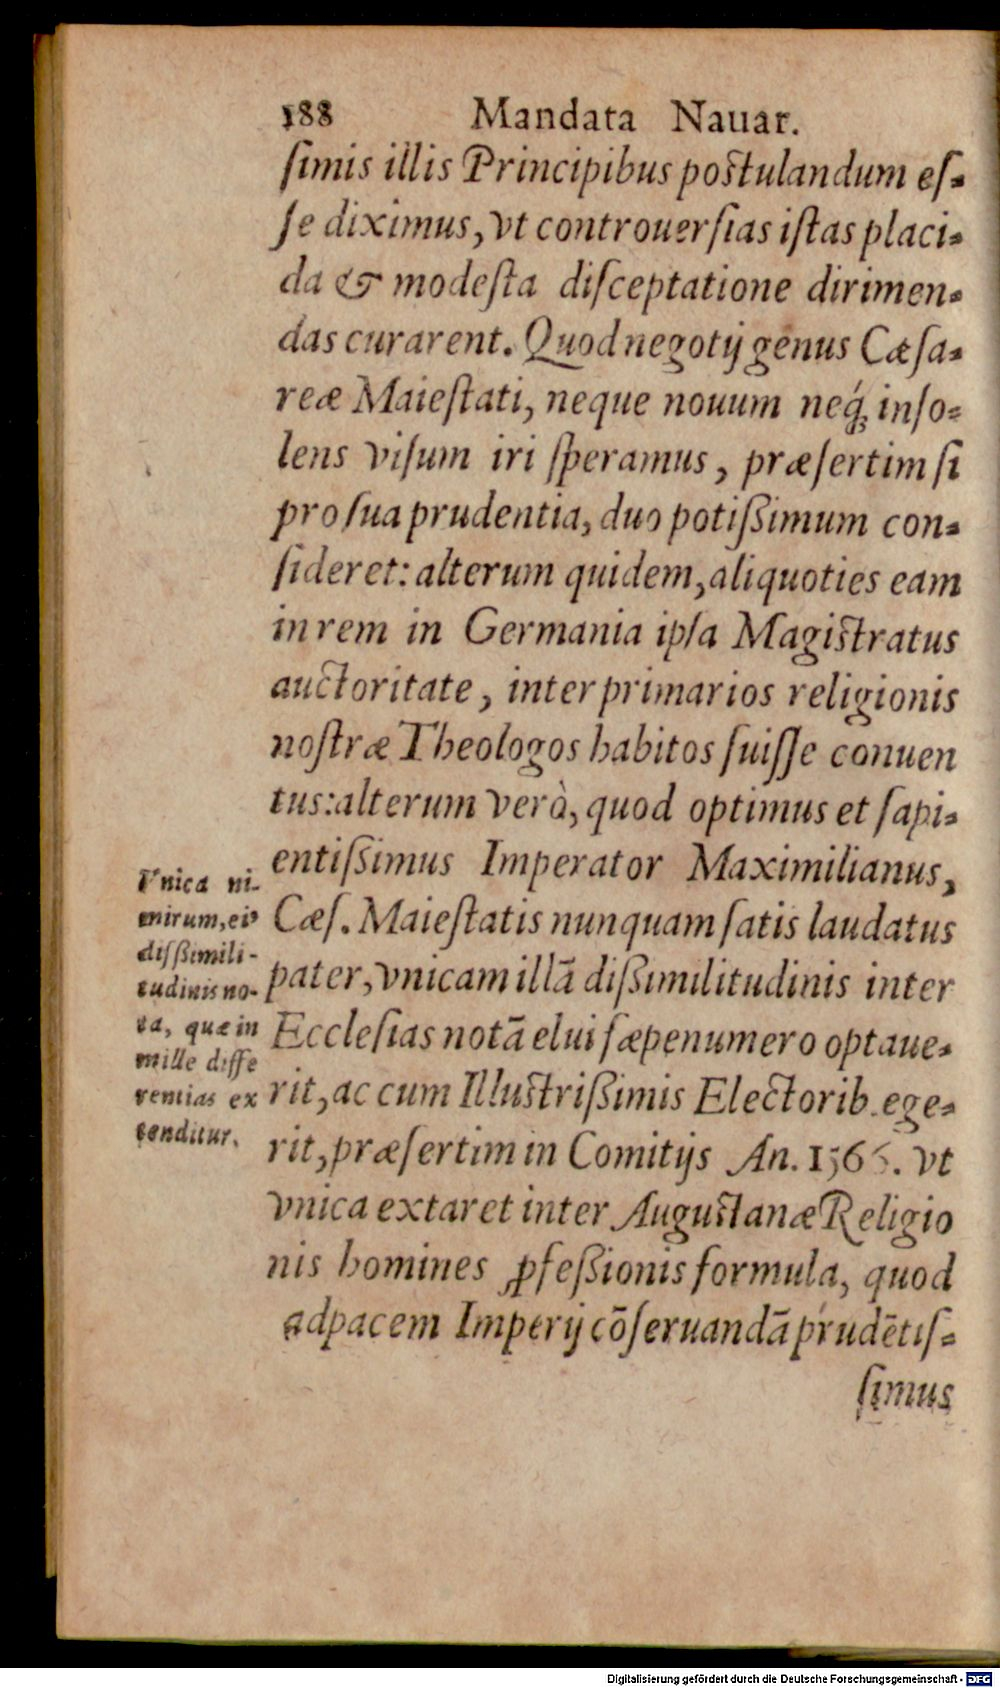 188 Mandata Nauar.
ſimis illis Principibus poſtulandum eſ-
ſe diximus, vt controuerſias iſtas placi-
da & modeſta diſceptatione dirimen-
das curarent. Quod negotij genus Cæſa-
reæ Maieſtati, neque nouum neq́; inſo-
lens viſum iri ſperamus, præſertim ſi
pro ſua prudentia, duo potiſſimum con-
ſideret: alterum quidem, aliquoties eam
in rem in Germania ipſa Magiſtratus
auctoritate, inter primarios religionis
noſtræ Theologos habitos fuiſſe conuen
tus: alterum verò, quod optimus et ſapi-
entiſſimus Imperator Maximilianus,
Cæſ. Maieſtatis nunquam ſatis laudatus
pater, vnicam illã diſſimilitudinis inter
Eccleſias notã elui ſæpenumero optaue-
rit, ac cum Illuſtriſſimis Electorib. ege-
rit, præſertim in Comitijs An. 1566. vt
vnica extaret inter Auguſtanæ Religio
nis homines ꝓfeſſionis formula, quod
ad pacem Imperij cõſeruandã prudẽtiſ-
ſimus
Vnica ni-
mirum, eiꝰ
diſſimili-
tudinis no-
ta, quæ in
mille diffe
rentias ex
tenditur.
Digitalisierung gefördert durch die Deutsche Forschungsgemeinschaft - DFG